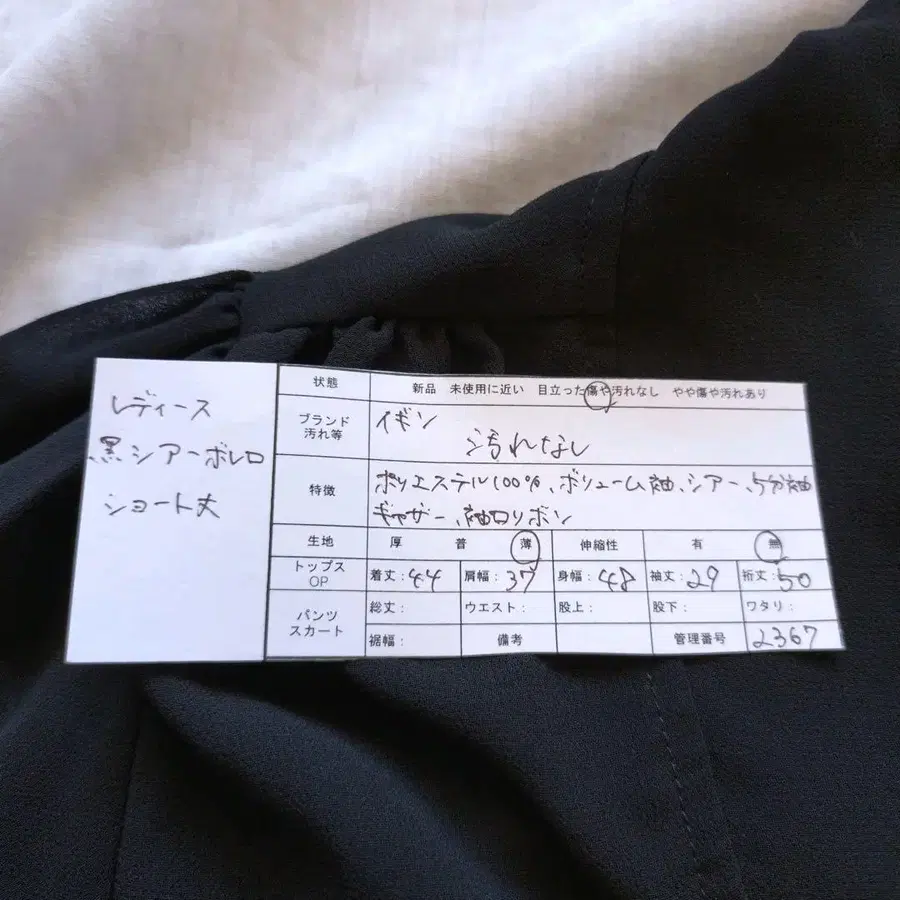 レディース
黒シアーボレロ
ショート丈
状態 新品 未使用に近い 目立った傷や汚れなし やや傷や汚れあり
ブランド
汚れ等
イギン
汚れなし
特徴
ポリエステル100%、ボリューム袖、シアー、5分袖
ギャザー、袖口リボン
生地 厚 普 薄 伸縮性 有 無
トップス
OP
着丈:44 肩幅:37 身幅:48 袖丈:29 裄丈:50
パンツ
スカート
総丈: ウエスト: 股上: 股下: ワタリ:
裾幅: 備考 管理番号 2367